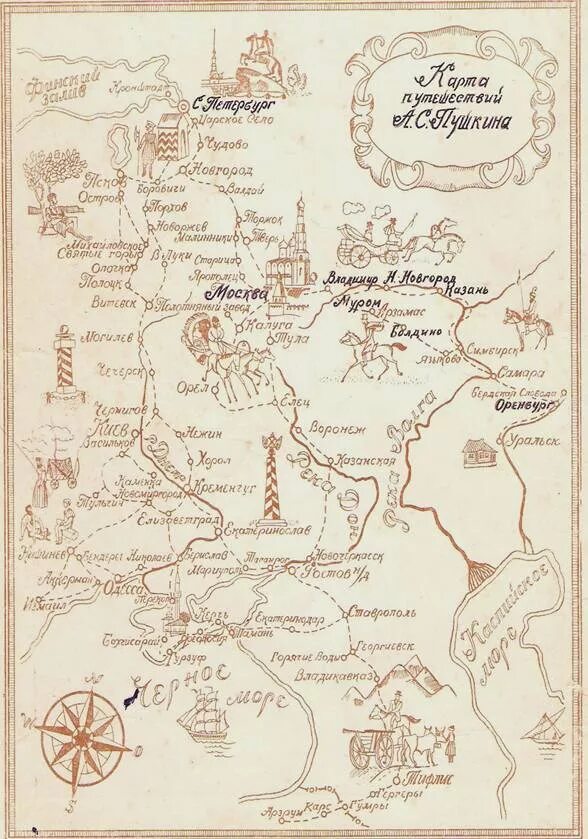 Карта
путешествий
А.С.Пушкина
Финский
залив
Кронштадт
С.Петербург
Царское Село
Чудово
Новгород
Псков
Боровичи
Валдай
Остров
Порхов
Новоржев
Торжок
Малинники
Тверь
Михайловское
Святые горы
В.Луки
Старица
Опочка
Ярополец
Полоцк
Москва
Владимир
Н.Новгород
Казань
Витевск
Полотняный завод
Муром
Арзамас
Калуга
Болдино
Тула
Могилев
Языково
Симбирск
Чечерск
Самара
Орел
Бердская Слобода
Елец
Оренбург
Чернигов
Река Волга
Киев
Воронеж
Васильков
Нежин
Уральск
р.Днепр
Хорол
Казанская
Река Дон
Каменка
Новомиргород
Кременчуг
Тульчин
Елизаветград
Екатеринослав
Кишинев
Бендеры
Николаев
Берислав
Таганрог
Новочеркасск
Мариуполь
Ростов н/Д
Аккерман
Одесса
Каспийское
море
Измаил
Перекоп
Керчь
Екатеринодар
Ставрополь
Бахчисарай
Феодосия
Тамань
Гурзуф
Георгиевск
Горячие Воды
Владикавказ
Черное
море
N
W
O
S
Тифлис
Гергеры
Арзрум
Карс
Гумры